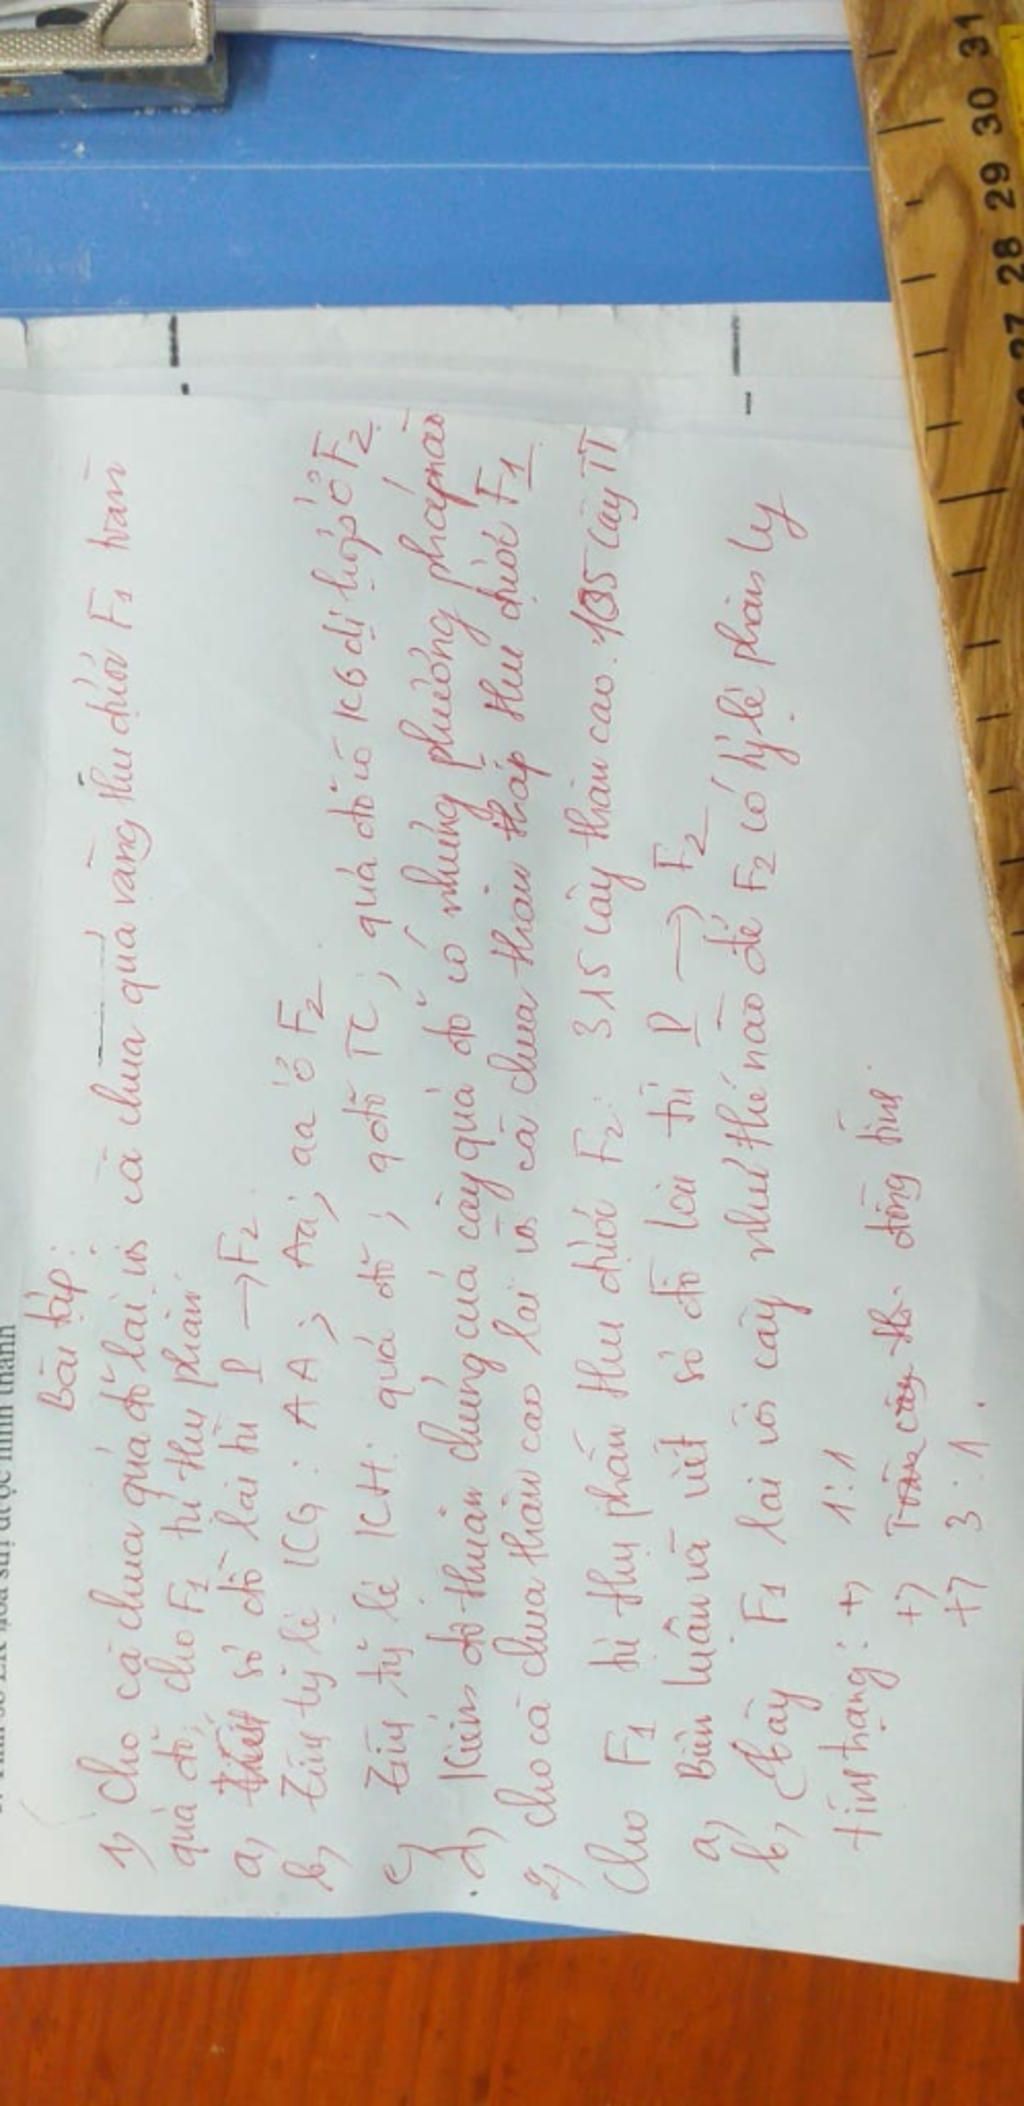 Bài tập:
1, Cho cà chua quả đỏ lai với cà chua quả vàng thu được F1 toàn
quả đỏ, cho F1 tự thụ phấn
a, Viết sơ đồ lai từ P → F2
b, Tìm tỷ lệ KG: AA; Aa; aa ở F2
c, Tìm tỷ lệ KH: quả đỏ; q đỏ TC; quả đỏ có KG dị hợp ở F2
d, Kiểm do thuần chủng của cây quả đỏ có những phương pháp nào
2, cho cà chua thân cao lai với cà chua thân thấp thu được F1
Cho F1 tự thụ phấn thu được F2: 315 cây thân cao. 105 cây TT
a, Biện luận và viết sơ đồ lai từ P → F2
b, Cây F1 lai với cây như thế nào để F2 có tỷ lệ phân ly
tính trạng: +, 1:1
+, đồng tính
+, 3:1.
27 28 29 30 31